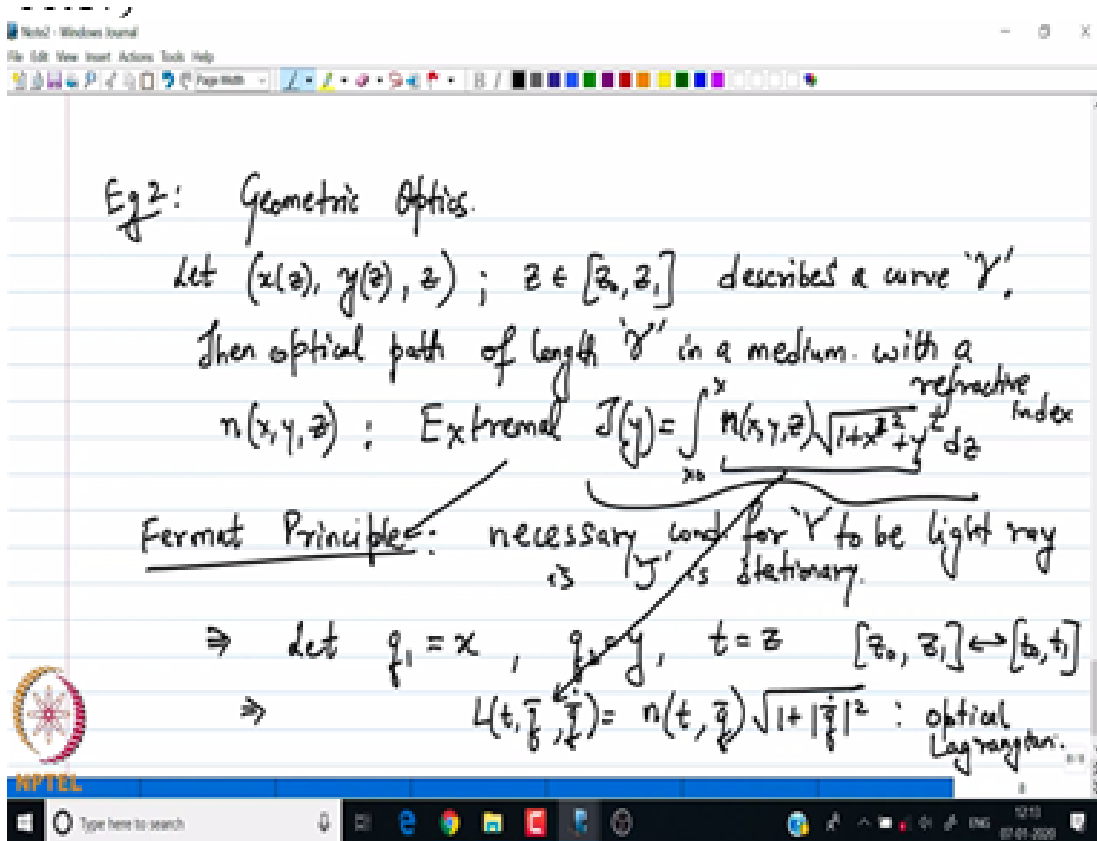 Note2 - Windows Journal
File Edit View Insert Actions Tools Help
Page Width
B I
Eg 2: Geometric Optics.
Let (x(z), y(z), z) ; z ∈ [z₀, z₁] describes a curve 'γ'.
Then optical path of length 'γ' in a medium. with a
refractive index
n(x, y, z) : Extremal J(y) = ∫ₓ₀ˣ n(x, y, z) √(1 + x'² + y'²) dz
Fermat Principle: necessary cond. for 'γ' to be light ray
is 'J' is stationary.
⇒ Let q₁ = x , q₂ = y, t = z [z₀, z₁] ↔ [t₀, t₁]
⇒ L(t, q̄, q̄̇) = n(t, q̄) √(1 + |q̄̇|²) : optical
Lagrangian.
NPTEL
8/8
8
Type here to search
ENG
12:13
07-01-2020